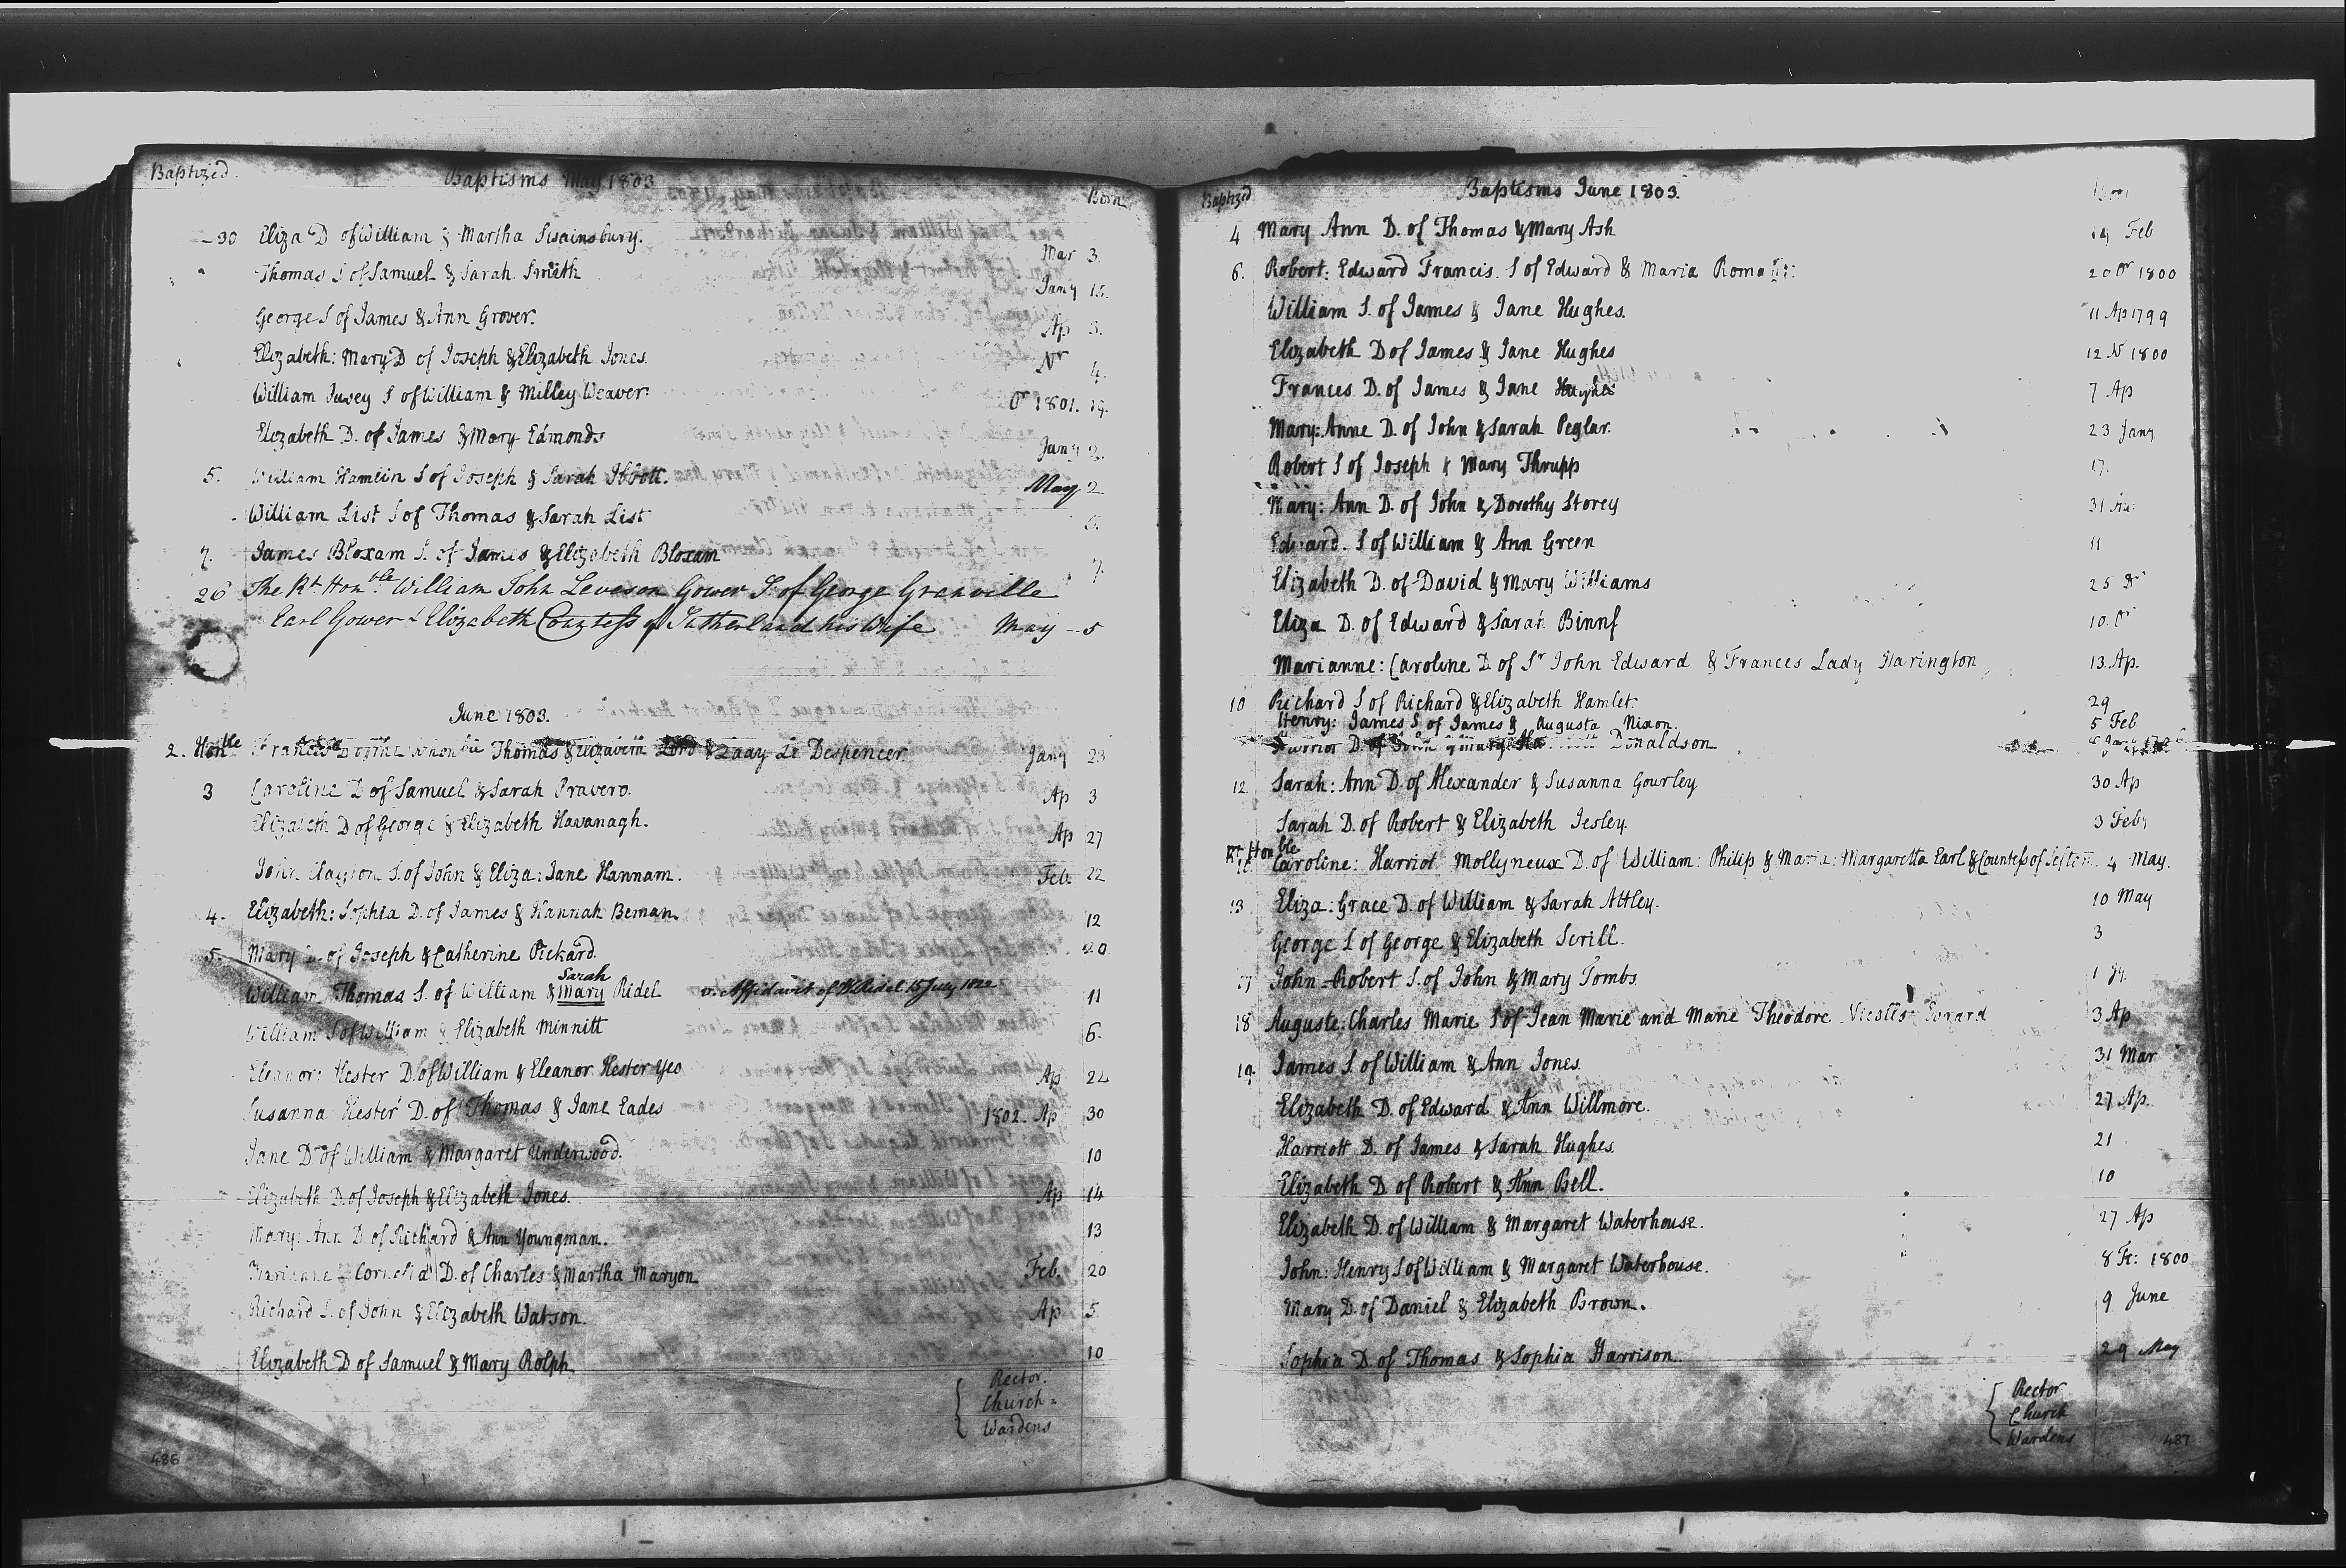 Baptized
Baptisms May 1803
Born
30 Eliza D of William & Martha Swainsbury. Mar 3.
Thomas S of Samuel & Sarah Smith Jany 15.
George S of James & Ann Grover. Ap 3.
Elizabeth: Mary D of Joseph & Elizabeth Jones. Nr 4.
William S of William & Milley Weaver. Or 1801. 19.
Elizabeth D. of James & Mary Edmonds Jany 2.
5. William Hamlin S of Joseph & Sarah Ibbott. May 2
William List S of Thomas & Sarah List
7. James Bloxam S. of James & Elizabeth Bloxam 7.
26 The Rt. Honble. William John Leveson Gower S. of George Granville
Earl Gower & Elizabeth Countess of Sutherland his Wife May - 5
June 1803.
2. Honble Frances D of the Honble Thomas & Elizabeth Lord & Lady Le Despencer. Jany 23
3 Caroline D of Samuel & Sarah Pravero. Ap 3
Elizabeth D of George & Elizabeth Kavanagh. Ap 27
John S. of John & Eliza: Jane Hannam. Feb. 22
4. Elizabeth: Sophia D. of James & Hannah Beman. 12
5. Mary D. of Joseph & Catherine Pickard. 20
Sarah
William Thomas S. of William & Mary Ridel v. Affidavit of W Ridel 15 July 1822 11
William S of William & Elizabeth Minnitt 6.
Eleanor: Hester D. of William & Eleanor Hester Yeo Ap 24
Susanna Hester D. of Thomas & Jane Eades 1802. Ap 30
Jane D of William & Margaret Underwood. 10
Elizabeth D. of Joseph & Elizabeth Jones. Ap 14
Mary: Ann D. of Richard & Ann Youngman. 13
Cornelia D. of Charles & Martha Maryon Feb. 20
Richard S. of John & Elizabeth Watson. Ap 5
Elizabeth D of Samuel & Mary Rolph. 10
Rector.
Church=
Wardens
486
Baptized
Baptisms June 1803.
Born
4 Mary Ann D. of Thomas & Mary Ash 14 Feb
6. Robert: Edward Francis. S of Edward & Maria 20 Or 1800
William S. of James & Jane Hughes. 11 Ap 1799
Elizabeth D of James & Jane Hughes 12 N 1800
Frances D. of James & Jane Hughes 7 Ap
Mary: Anne D. of John & Sarah Peglar. 23 Jany
Robert S of Joseph & Mary Thrupp 17.
Mary: Ann D. of John & Dorothy Storey 31
Edward. S of William & Ann Green 11
Elizabeth D. of David & Mary Williams 25
Eliza D. of Edward & Sarah Binns 10 Or
Marianne: Caroline D of Sr John Edward & Frances Lady Harington 13. Ap.
10 Richard S of Richard & Elizabeth Hamlet. 29
Henry: James S of James & Augusta Nixon. 5 Feb
D. of John & Mary Donaldson
12. Sarah: Ann D. of Alexander & Susanna Gourley 30 Ap
Sarah D. of Robert & Elizabeth Jesley. 3 Feby
Rt Honble
Caroline: Harriot Mollyneux D. of William: Philip & Maria: Margaretta Earl & Countess of Sefton 4 May.
13 Eliza: Grace D. of William & Sarah Attley. 10 May
George S of George & Elizabeth Scrill. 3
17 John-Robert S. of John & Mary Tombs. 1
18 Auguste: Charles Marie S of Jean Marie and Marie Theodore 3 Ap
19. James S. of William & Ann Jones. 31 Mar
Elizabeth D. of Edward & Ann Willmore. 27 Ap.
Harriott D. of James & Sarah Hughes. 21
Elizabeth D. of Robert & Ann Bell. 10
Elizabeth D. of William & Margaret Waterhouse. 27 Ap
John: Henry S of William & Margaret Waterhouse. 8 Fe: 1800
Mary D. of Daniel & Elizabeth Brown. 9 June
Sophia D. of Thomas & Sophia Harrison. 29 May
Rector
Church
Wardens
487